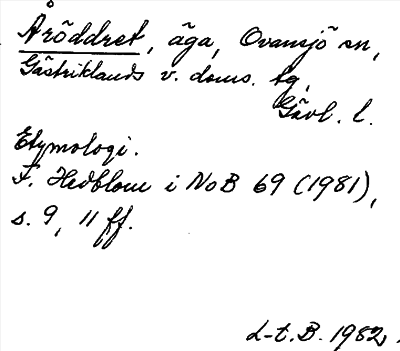 Åröddret, äga, Ovansjö sn,
Gästriklands v. doms. tg,
Gävl. l.
Etymologi.
F. Hedblom i NoB 69 (1981),
s. 9, 11 ff.
L-t. B. 1982.